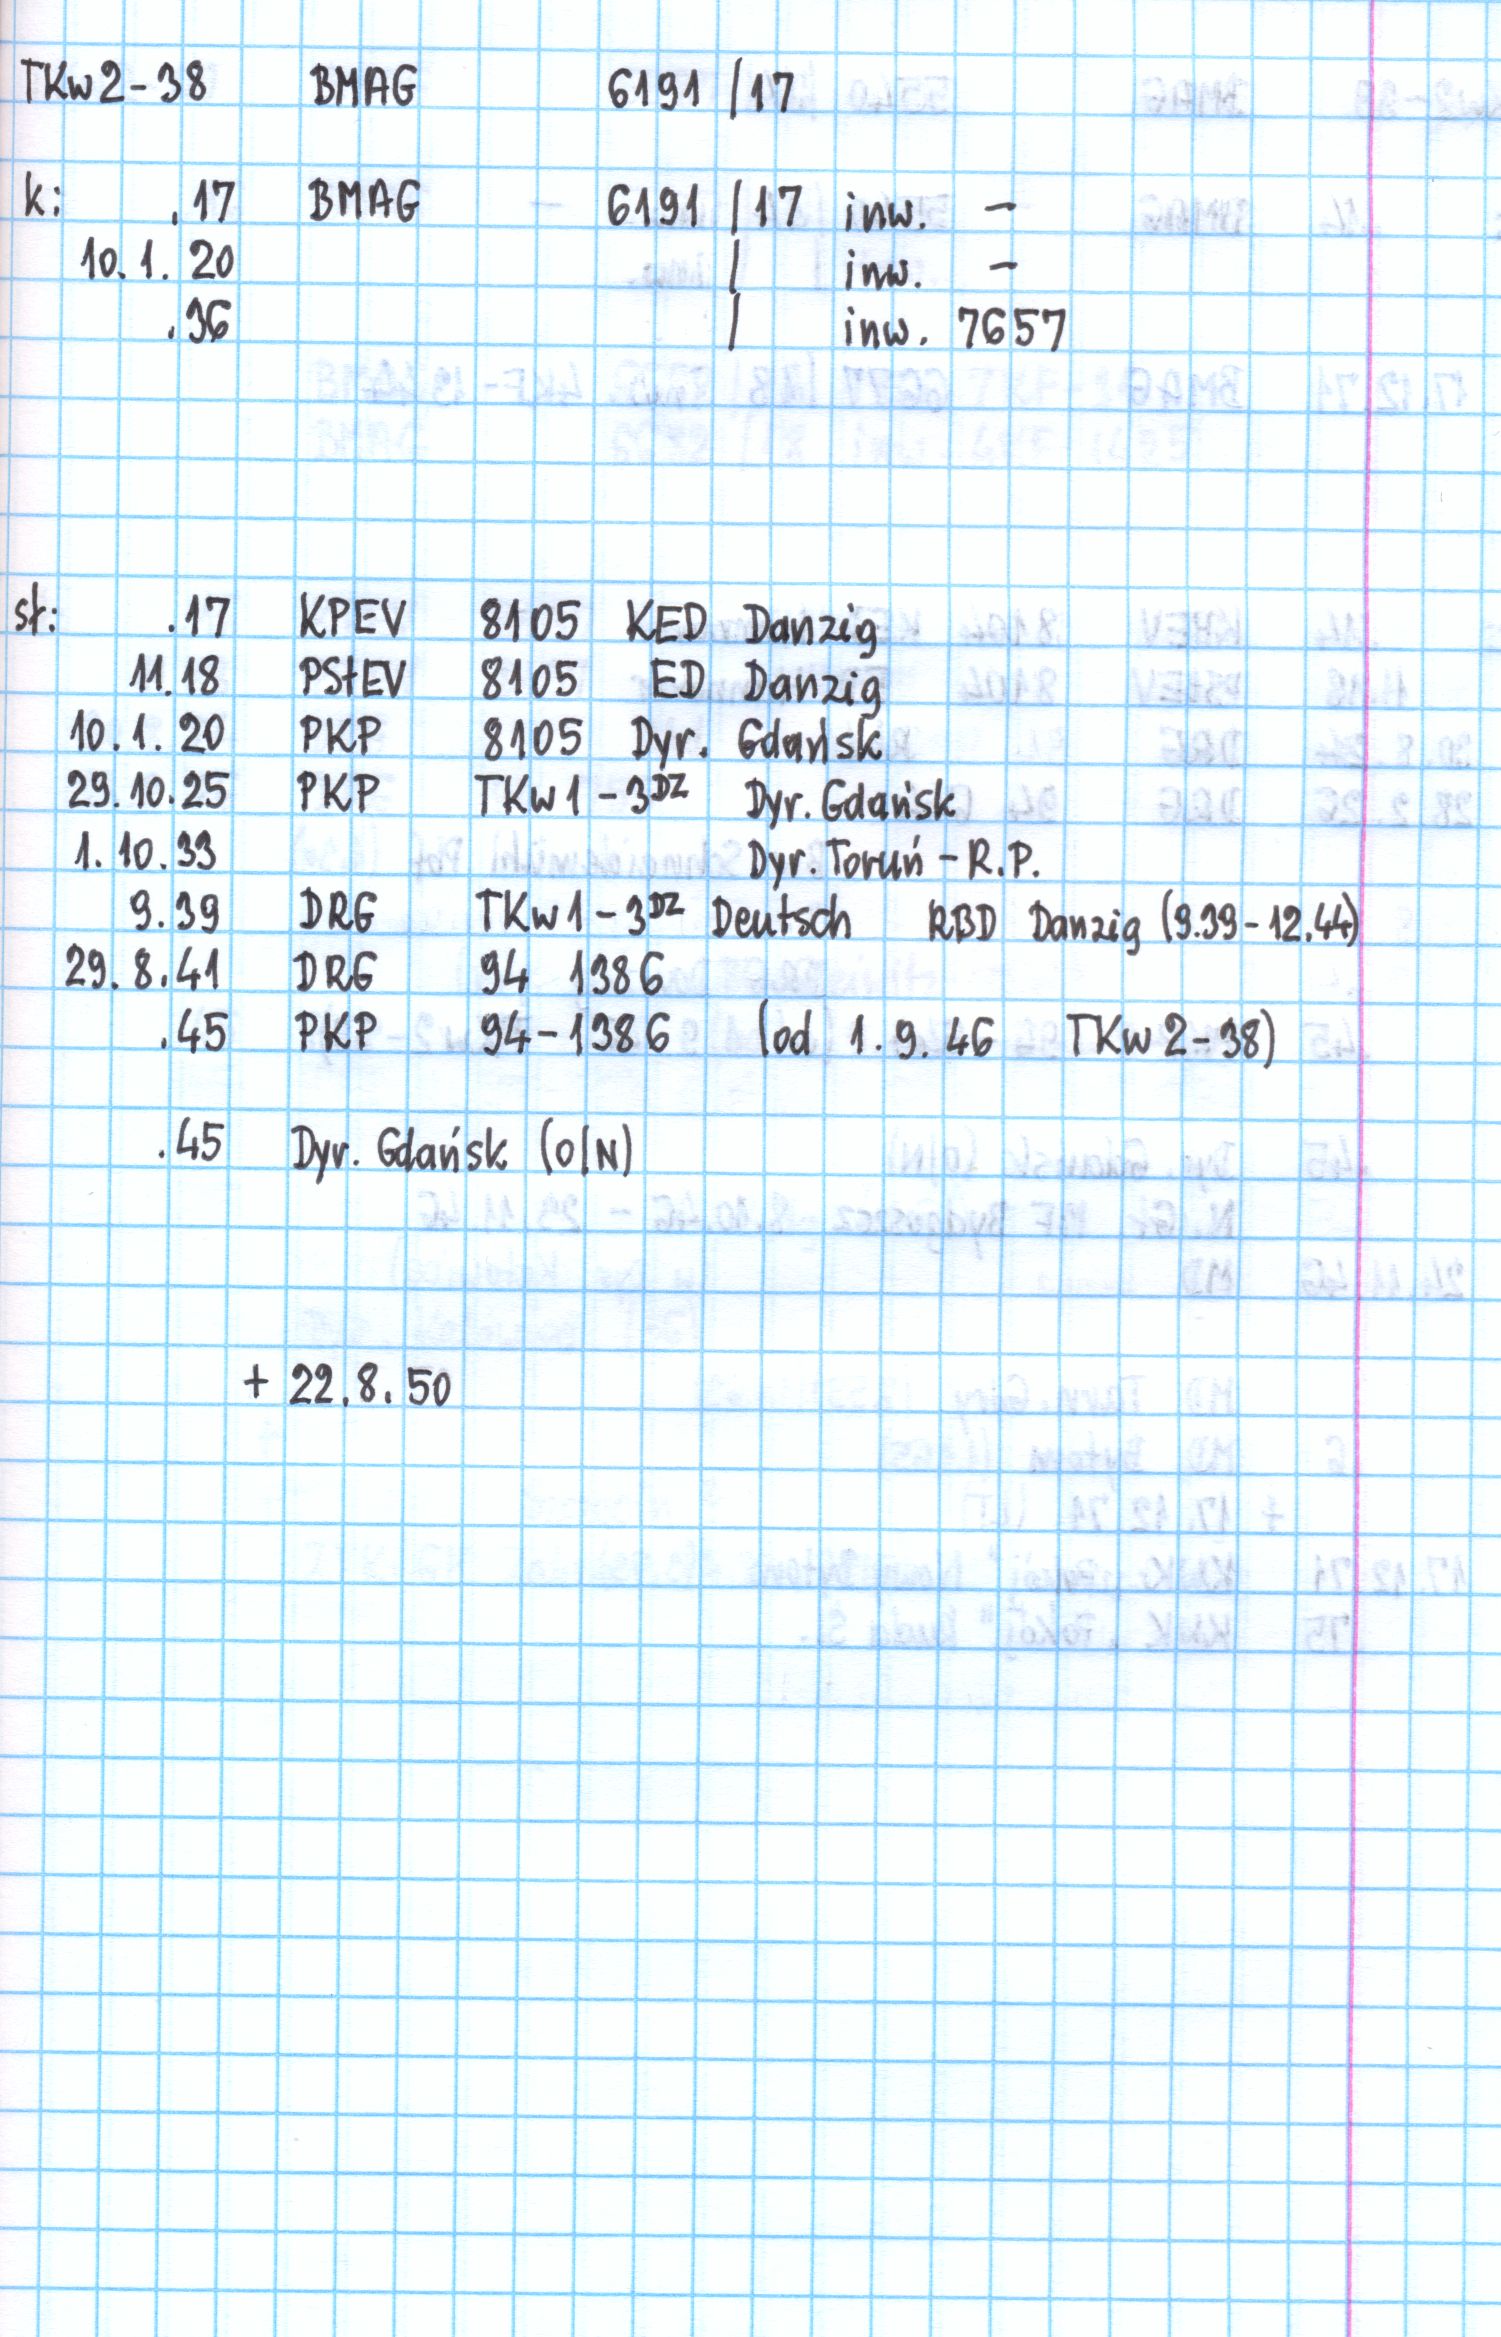 TKw2-38 BMAG 6191 /17
k: .17 BMAG 6191 /17 inw. -
10.1.20 / inw. -
.36 / inw. 7657
st: .17 KPEV 8105 KED Danzig
11.18 PStEV 8105 ED Danzig
10.1.20 PKP 8105 Dyr. Gdańsk
29.10.25 PKP TKw1-3DZ Dyr. Gdańsk
1.10.33 Dyr. Toruń - R.P.
9.39 DRG TKw1-3DZ Deutsch RBD Danzig (9.39-12.44)
29.8.41 DRG 94 1386
.45 PKP 94-1386 (od 1.9.46 TKw2-38)
.45 Dyr. Gdańsk (O/N)
+ 22.8.50